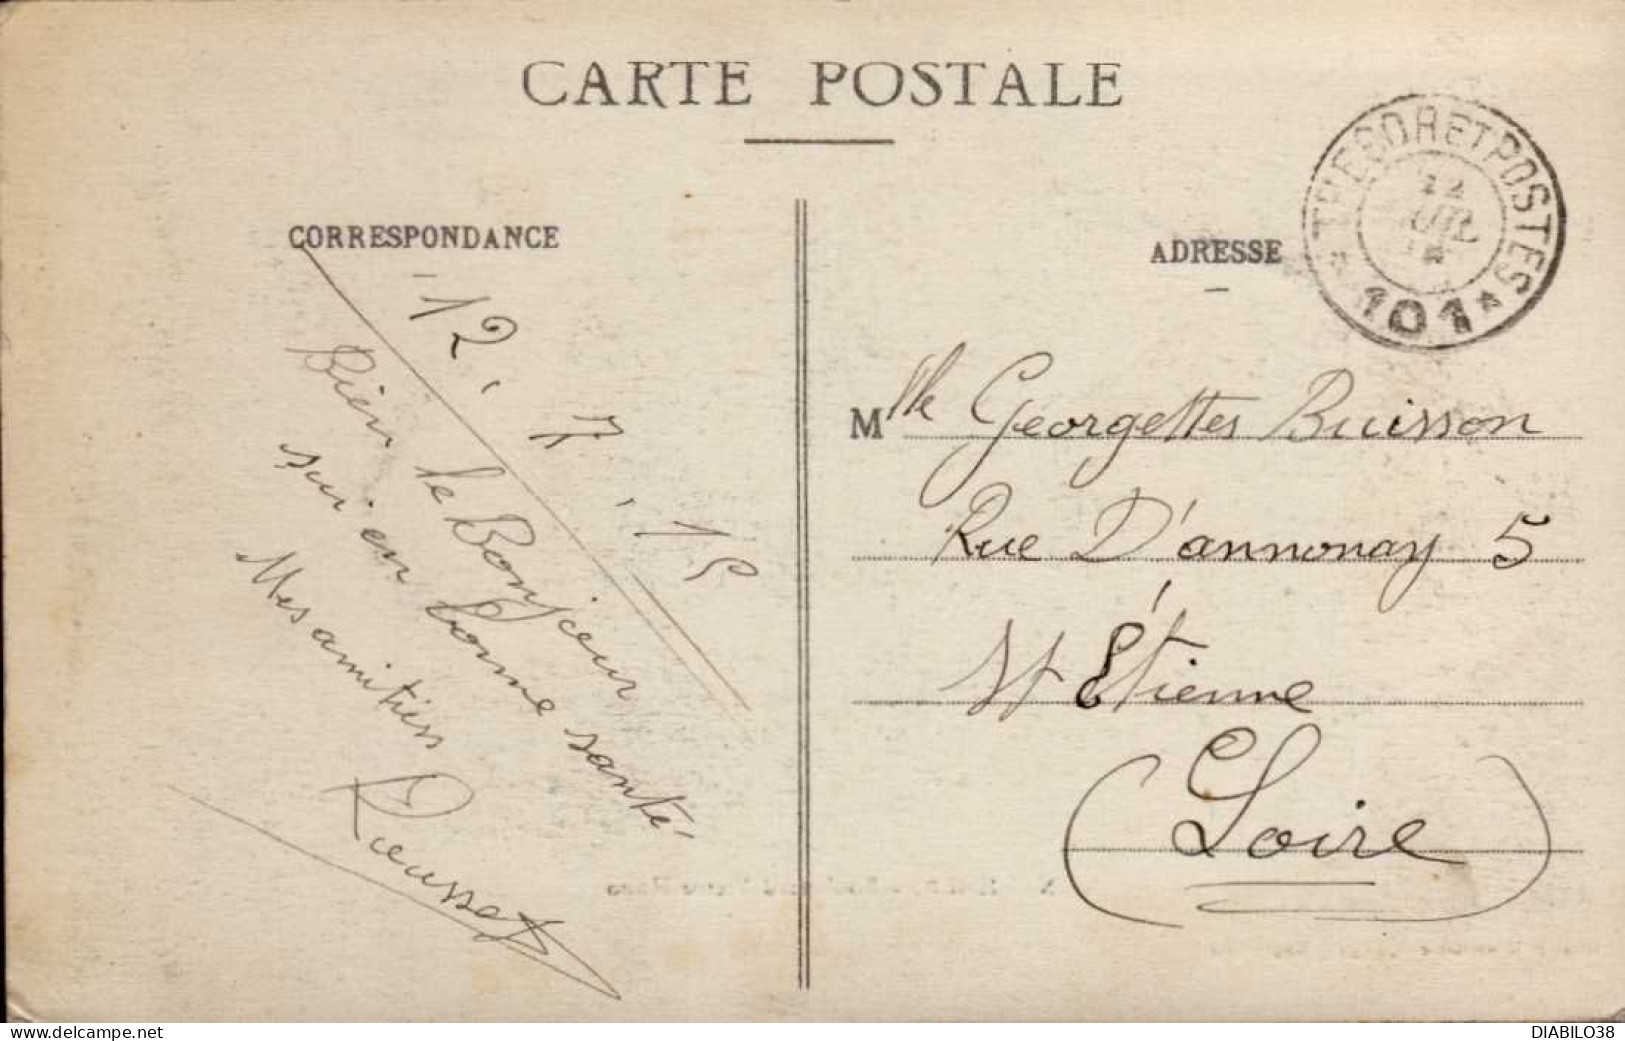 CARTE POSTALE
CORRESPONDANCE
12.7.15
Bien le Bonjour
sui en bonne santé
Mes amitiés
Rousset
ADRESSE
TRESOR ET POSTES
22
101
Mlle Georgettes Buisson
Rue D'annonay 5
St Étienne
(Loire)
www.delcampe.net
DIABILO38